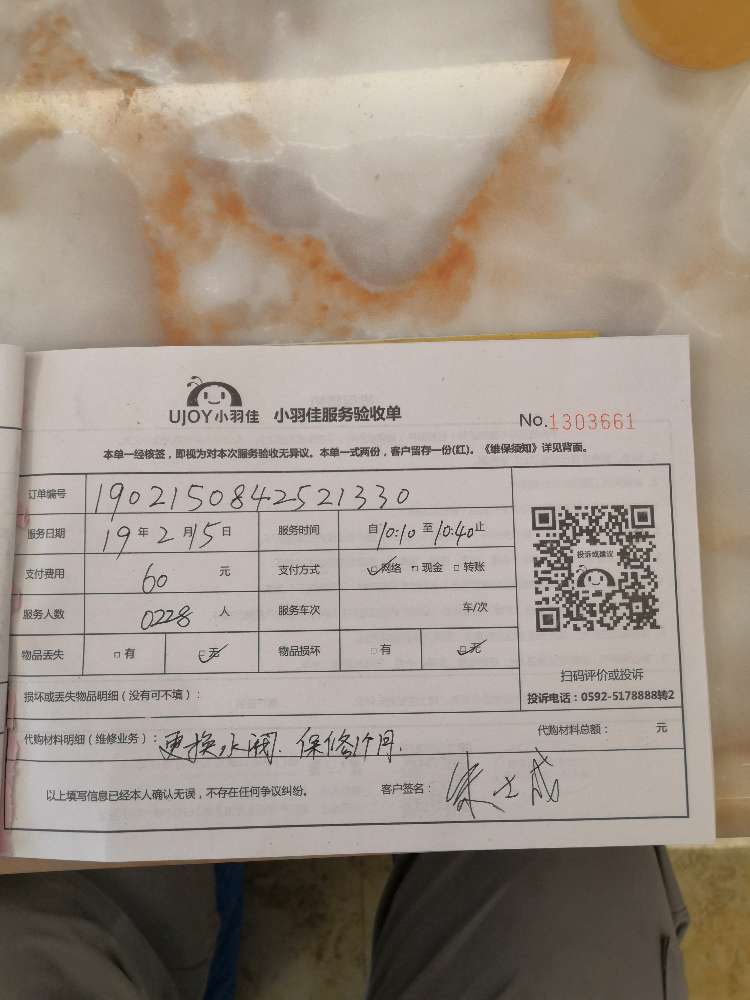 UJOY小羽佳 小羽佳服务验收单 No.1303661
本单一经核签，即视为对本次服务验收无异议。本单一式两份，客户留存一份(红)。《维保须知》详见背面。
订单编号 1902150842521330
服务日期 19年2月15日 服务时间 自10:10至10:40止
支付费用 60元 支付方式 ☑网络 □现金 □转账
服务人数 0228人 服务车次 车/次
物品丢失 □有 ☑无 物品损坏 □有 ☑无
投诉或建议
扫码评价或投诉
投诉电话：0592-5178888转2
损坏或丢失物品明细（没有可不填）：
代购材料明细（维修业务）：更换水阀.保修1个月. 代购材料总额： 元
以上填写信息已经本人确认无误，不存在任何争议纠纷。 客户签名：